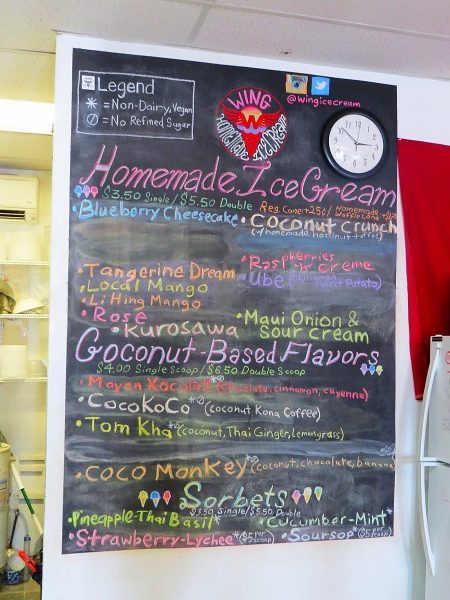 Legend
* = Non-Dairy, Vegan
∅ = No Refined Sugar
WING
HOMEMADE ICE CREAM
@wingicecream
Homemade IceCream
$3.50 Single/$5.50 Double
Reg. Cone +25¢ / Homemade Waffle Cone
• Blueberry Cheesecake
• Coconut Crunch
(w/ homemade hazelnut toffee)
• Tangerine Dream
• Raspberries -n- Creme
• Local Mango
• Ube (Okinawan Sweet Potato)
• Li Hing Mango
• Rosé
• Maui Onion & Sour cream
• Kurosawa
Coconut-Based Flavors
$4.00 Single Scoop/$6.50 Double Scoop
• Mayan Xocolatl*∅ (chocolate, cinnamon, cayenne)
• CocoKoCo*∅ (coconut Kona Coffee)
• Tom Kha*∅ (coconut, Thai Ginger, Lemongrass)
• Coco Monkey*∅ (coconut, chocolate, banana)
Sorbets
$3.50 Single/$5.50 Double
• Pineapple-Thai Basil*
• Cucumber-Mint*
• Strawberry-Lychee* ($5 per scoop)
• Soursop* ($5 per scoop)